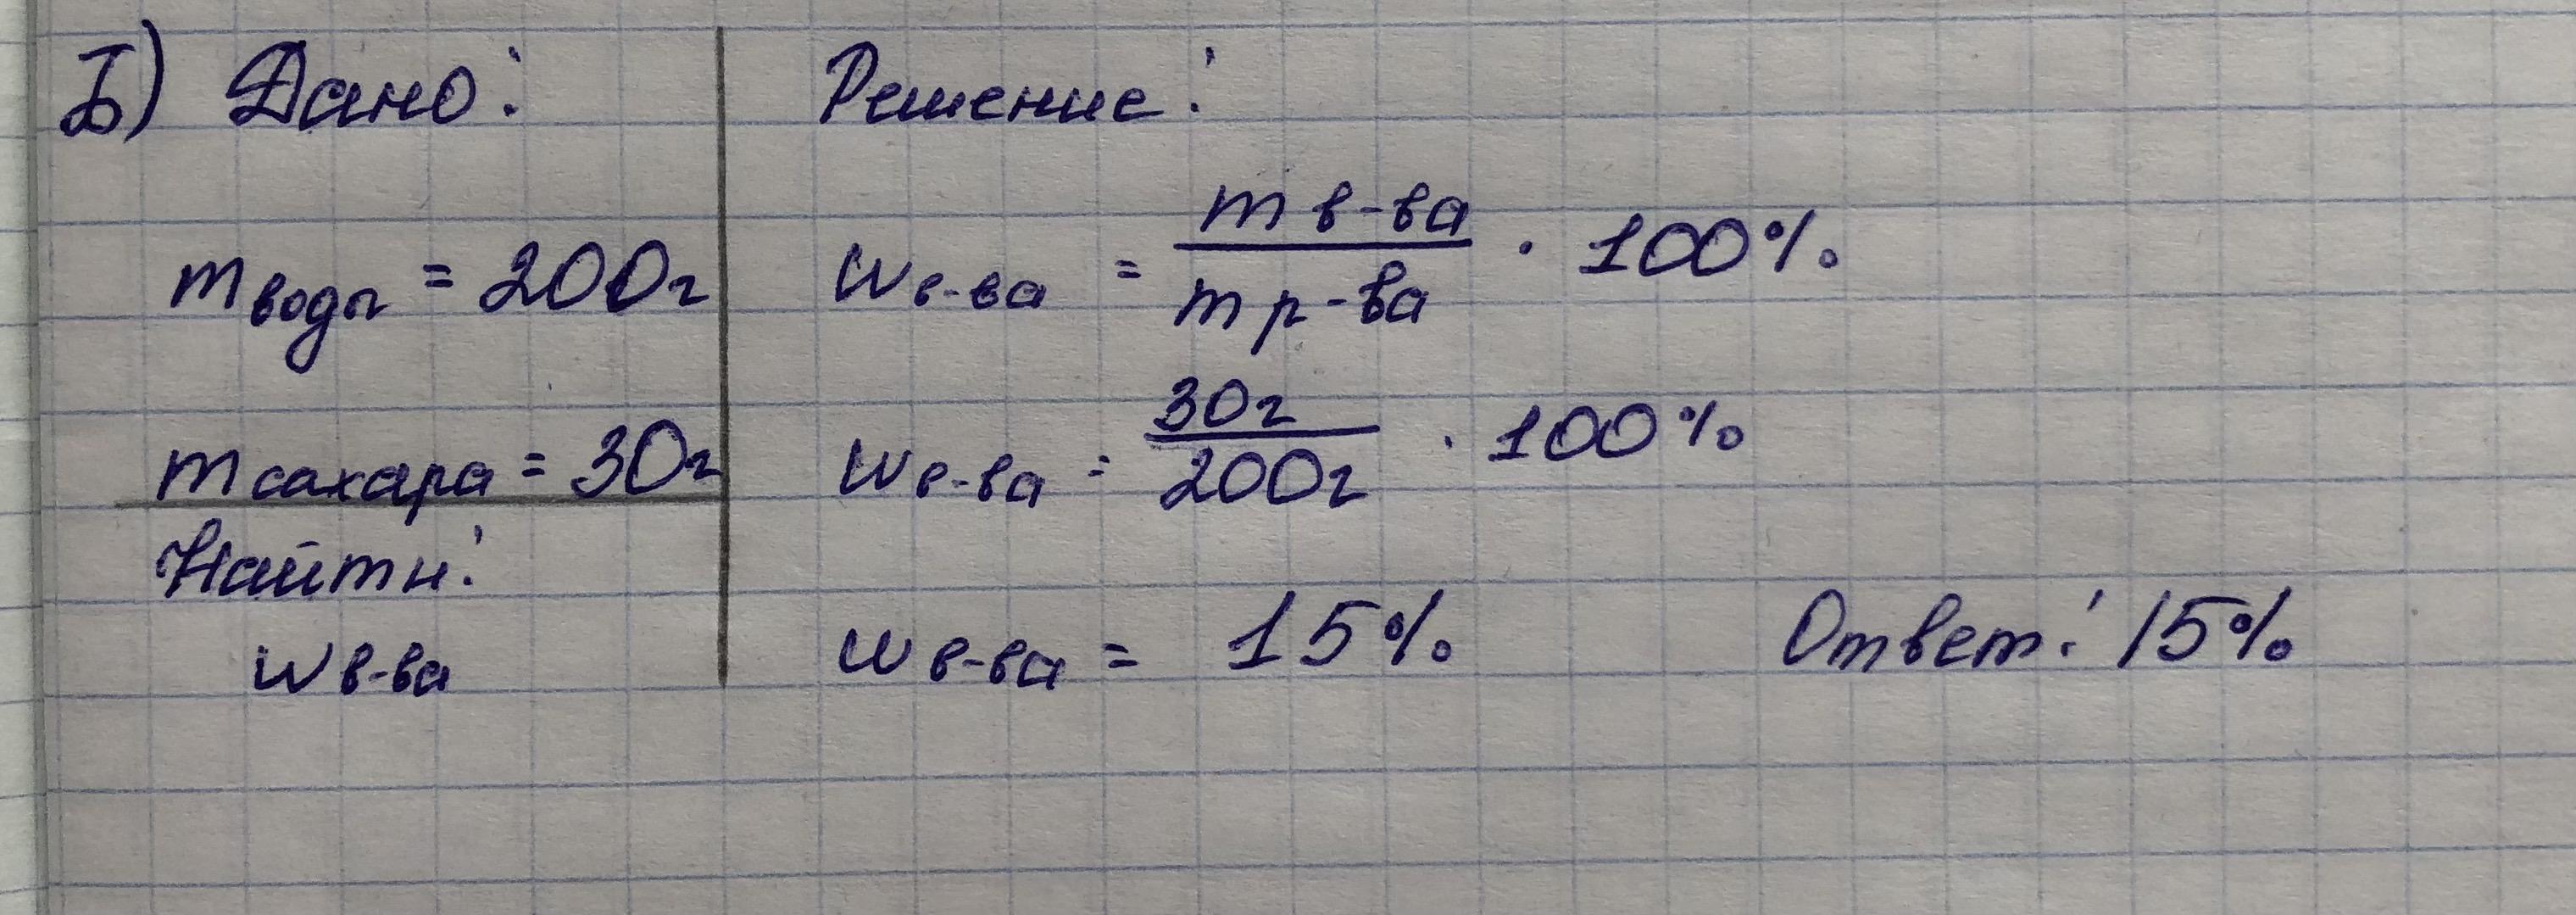 Б) Дано:
m воды = 200г
m сахара = 30г
Найти:
w в-ва
Решение:
w в-ва = m в-ва / m р-ва · 100%
w в-ва = 30г / 200г · 100%
w в-ва = 15%
Ответ: 15%